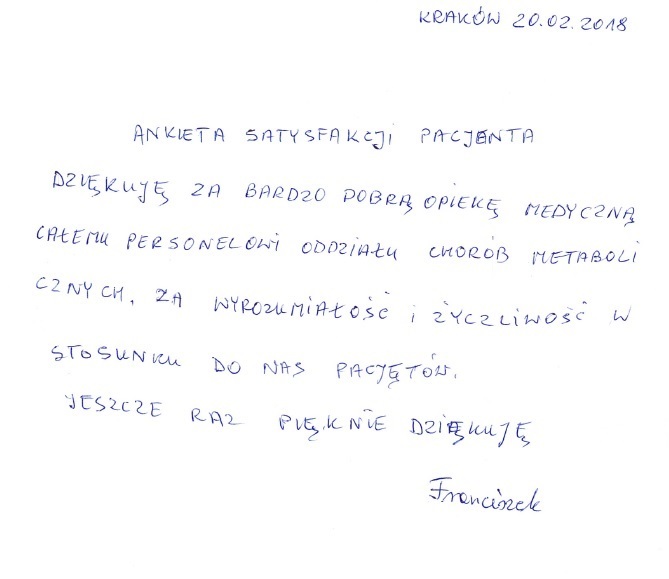 KRAKÓW 20.02.2018
ANKIETA SATYSFAKCJI PACJENTA
DZIĘKUJĘ ZA BARDZO DOBRĄ OPIEKĘ MEDYCZNĄ
CAŁEMU PERSONELOWI ODDZIAŁU CHORÓB METABOLI
CZNYCH, ZA WYROZUMIAŁOŚĆ i ŻYCZLIWOŚĆ W
STOSUNKU DO NAS PACJĘTÓW.
JESZCZE RAZ PIĘKNIE DZIĘKUJĘ
Franciszek